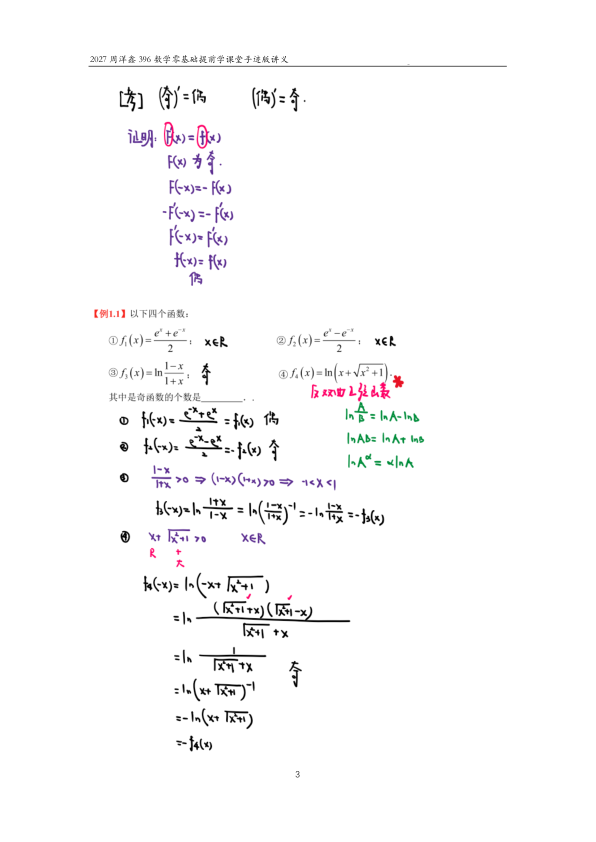 2027 周洋鑫 396 数学零基础提前学课堂手迹版讲义
[考] (奇)'=偶 (偶)'=奇.
证明: F'(x)=f(x)
F(x) 为奇.
F(-x)=-F(x)
-F'(-x)=-F'(x)
F'(-x)=F'(x)
f(-x)=f(x)
偶
【例1.1】以下四个函数:
① f₁(x)=(eˣ+e⁻ˣ)/2; x∈R ② f₂(x)=(eˣ-e⁻ˣ)/2; x∈R
③ f₃(x)=ln (1-x)/(1+x); 奇 ④ f₄(x)=ln(x+√(x²+1)).
反双曲正弦函数
其中是奇函数的个数是________. .
ln A/B = lnA-lnB
lnAB= lnA+ lnB
lnA^α = αlnA
① f₁(-x)= (e⁻ˣ+eˣ)/2 = f₁(x) 偶
② f₂(-x)= (e⁻ˣ-eˣ)/2 =-f₂(x) 奇
③ (1-x)/(1+x) >0 ⇒ (1-x)(1+x)>0 ⇒ -1<x<1
f₃(-x)=ln (1+x)/(1-x) = ln((1-x)/(1+x))⁻¹ =-ln (1-x)/(1+x) =-f₃(x)
④ x+ √(x²+1) >0 x∈R
R +
f₄(-x)= ln(-x+ √(x²+1))
=ln (√(x²+1)+x)(√(x²+1)-x)/(√(x²+1)+x)
=ln 1/(√(x²+1)+x) 奇
=ln(x+ √(x²+1))⁻¹
=-ln(x+ √(x²+1))
=-f₄(x)
3